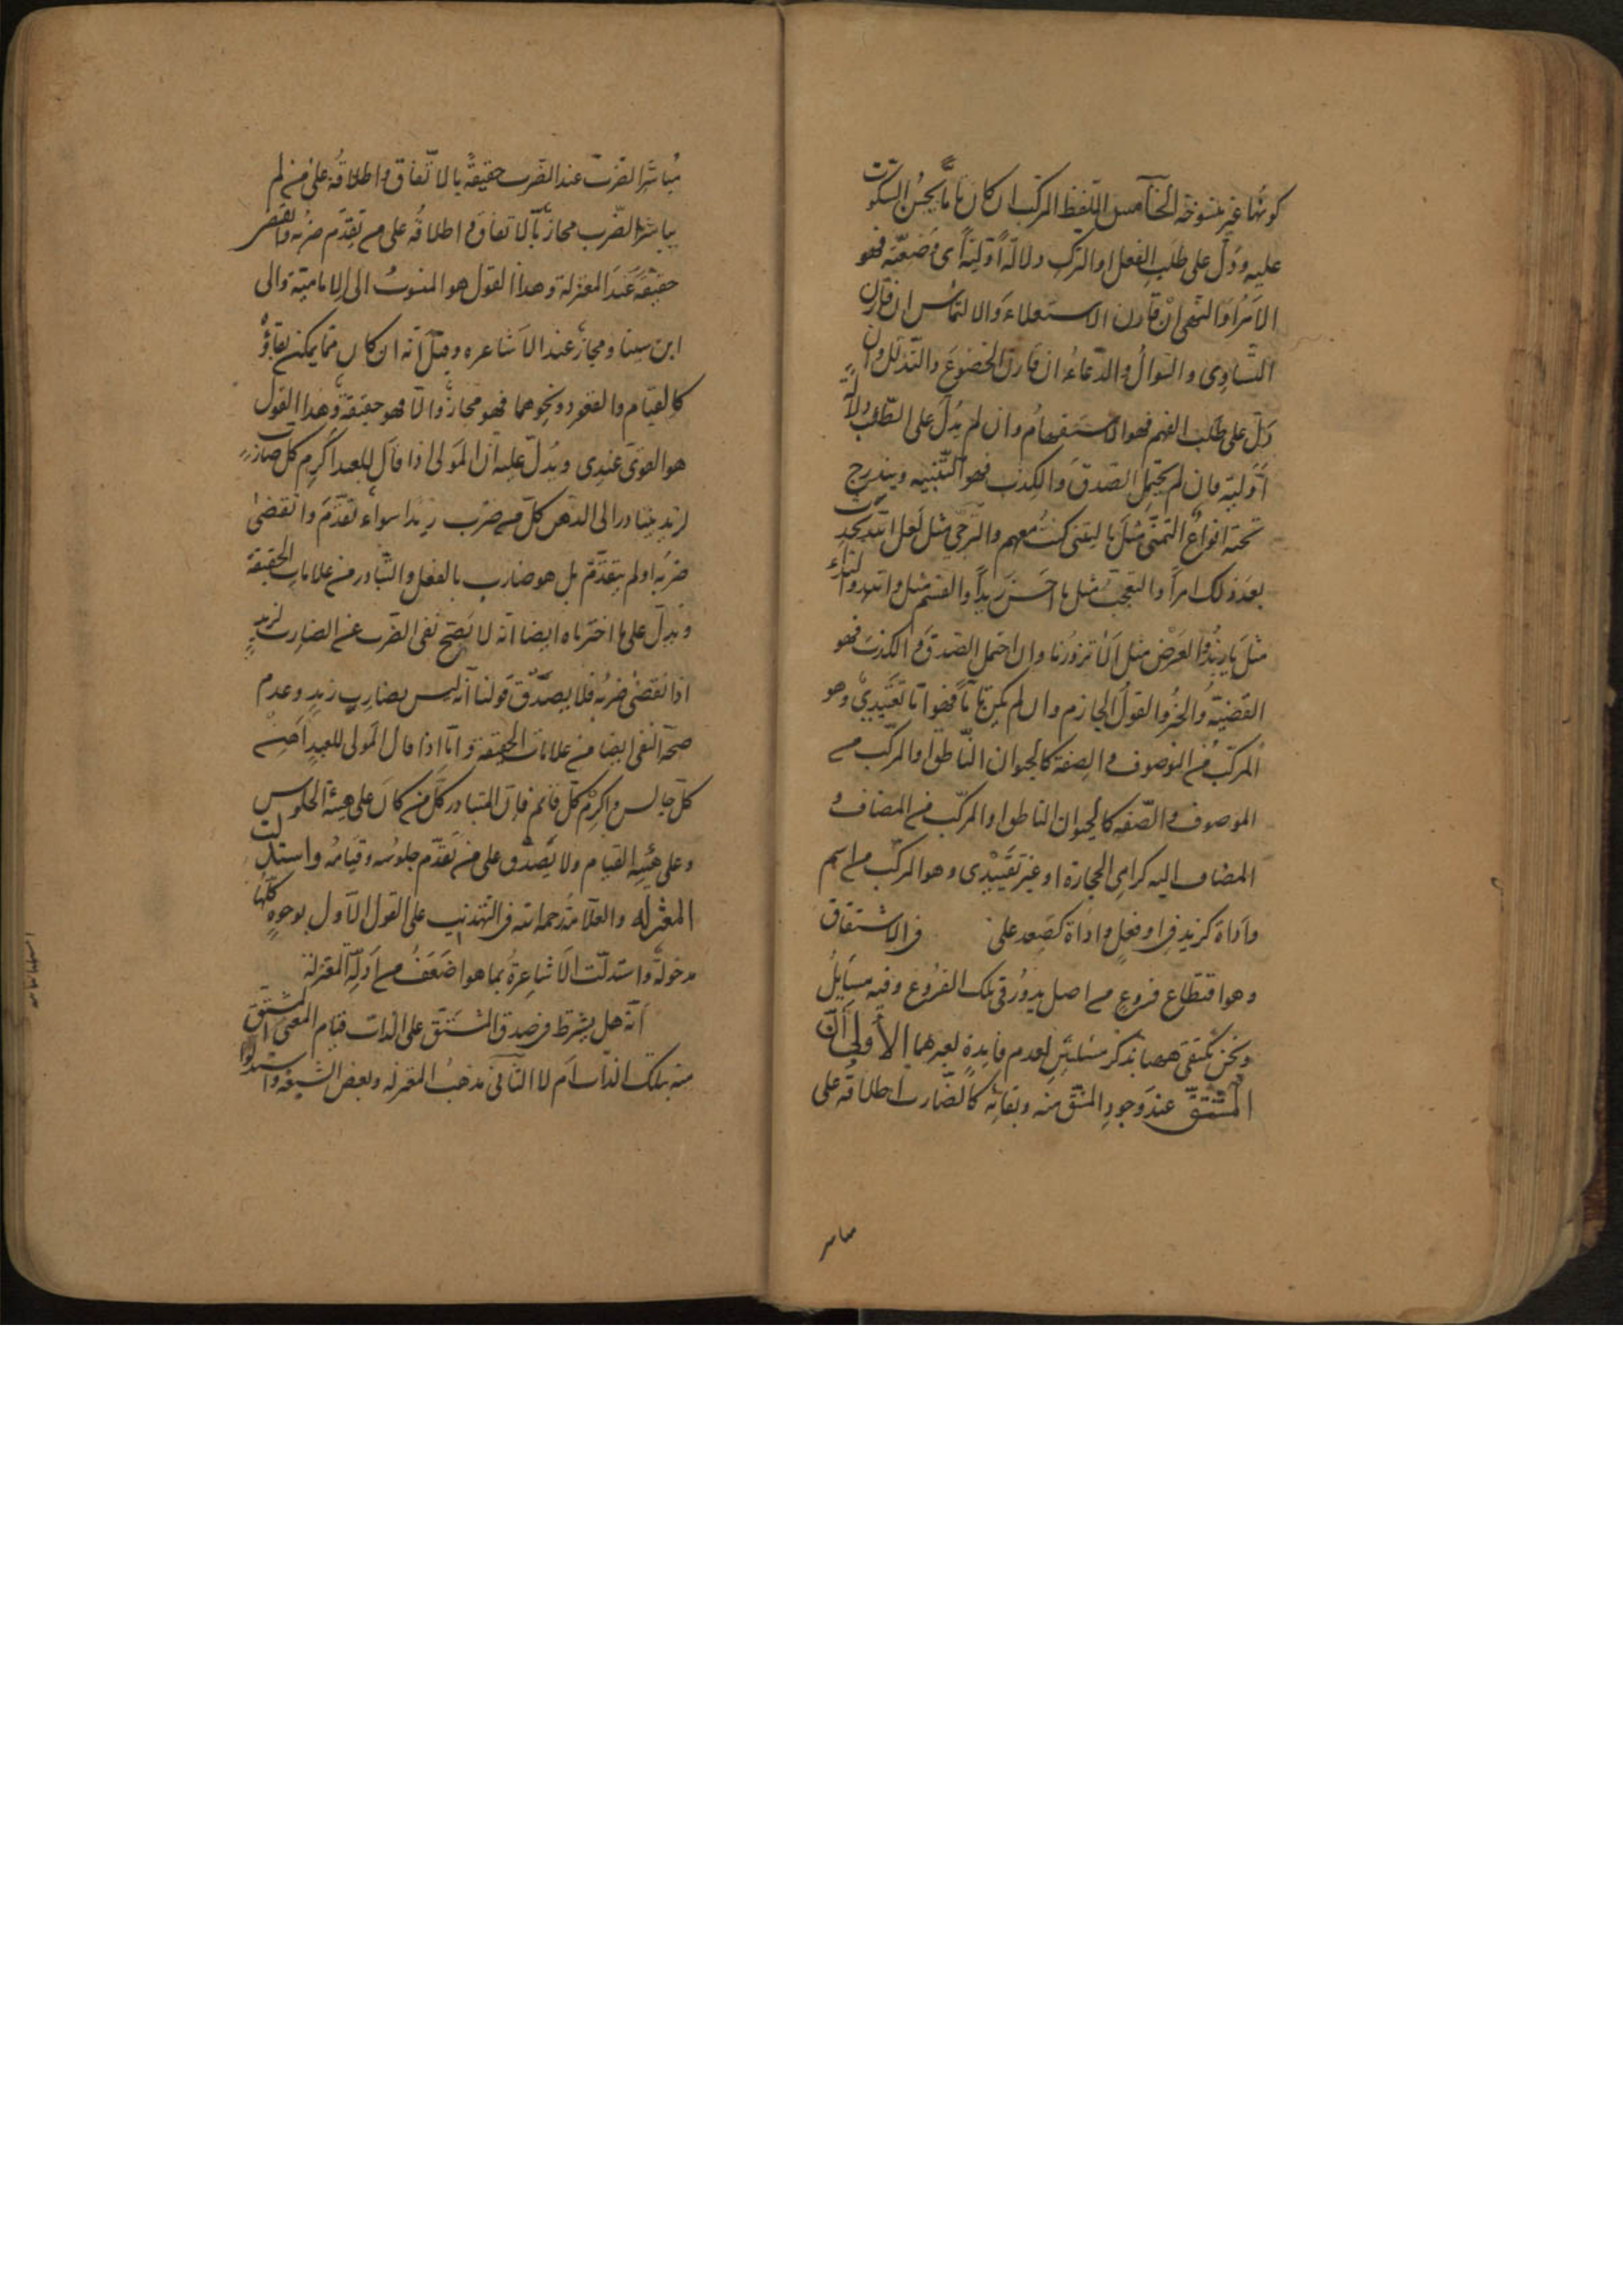 كونها غير منسوخة الخامس اللفظ المركب ان كان تاما يحسن السكوت
عليه ودل على طلب الفعل او الترك دلالة اولية اى وضعية فهو
الامر او النهى ان قارن الاستعلاء والالتماس ان قارن
التساوى والسوال والدعاء ان قارن الخضوع والتذلل وان
دل على طلب الفهم فهو الاستفهام وان لم يدل على الطلب دلالة
اولية فان لم يحتمل الصدق والكذب فهو التنبيه ويندرج
تحته انواع التمنى مثل يا ليتنى كنت معهم والترجى مثل لعل الله يحدث
بعد ذلك امرا والتعجب مثل ما احسن زيدا والقسم مثل والله والنداء
مثل يا زيد والعرض مثل الا تزورنا وان احتمل الصدق والكذب فهو
القضية والخبر والقول الجازم وان لم يكن تاما فهو اما تقييدى وهو
المركب من الموصوف والصفة كالحيوان الناطق او المركب من
الموصوف والصفه كالحيوان الناطق او المركب من المضاف و
المضاف اليه كرامى الحجارة او غير تقييدى وهو المركب من اسم
واداة كزيد فى او فعل واداة كصعد على فى الاشتقاق
وهو اقتطاع فروع من اصل يدور فى تلك الفروع وفيه مسايل
ونحن نكتفى ههنا بذكر مسئلتين لعدم فايدة لغيرهما الاولى ان
المشتق عند وجود المشتق منه وبقائه كالضارب اطلاقه على
مباشر الضرب عند الضرب حقيقة بالاتفاق واطلاقه على من لم
يباشر الضرب مجاز بالاتفاق واطلاقه على من تقدم ضربه وانقضى
حقيقة عند المعتزلة وهذا القول هو المنسوب الى الامامية والى
ابن سينا ومجاز عند الاشاعره وقيل انه ان كان مما يمكن بقاؤه
كالقيام والقعود ونحوهما فهو مجاز والا فهو حقيقة وهذا القول
هو القوى عندى ويدل عليه ان المولى اذا قال للعبد اكرم كل ضارب
لزيد يتبادر الى الذهن كل من ضرب زيدا سواء تقدم وانقضى
ضربه او لم يتقدم بل هو ضارب بالفعل والتبادر من علامات الحقيقة
ويدل على ما اخترناه ايضا انه لا يصح نفى الضرب عن الضارب لزيد
اذا انقضى ضربه فلا يصدق قولنا انه ليس بضارب زيد وعدم
صحة النفى ايضا من علامات الحقيقة واما اذا قال المولى للعبد احسن
كل جالس واكرم كل قائم فان المتبادر كل من كان على هيئة الجلوس
وعلى هيئة القيام ولا يصدق على من تقدم جلوسه وقيامه واستدلت
المعتزله والعلامة رحمه الله فى التهذيب على القول الاول بوجوه كلها
مدخولة واستدلت الاشاعرة بما هو اضعف من ادلة المعتزلة
انه هل يشترط فى صدق المشتق على الذات قيام المعنى المشتق
منه بتلك الذات ام لا الثانى مذهب المعتزله وبعض الشيعه واستدلوا